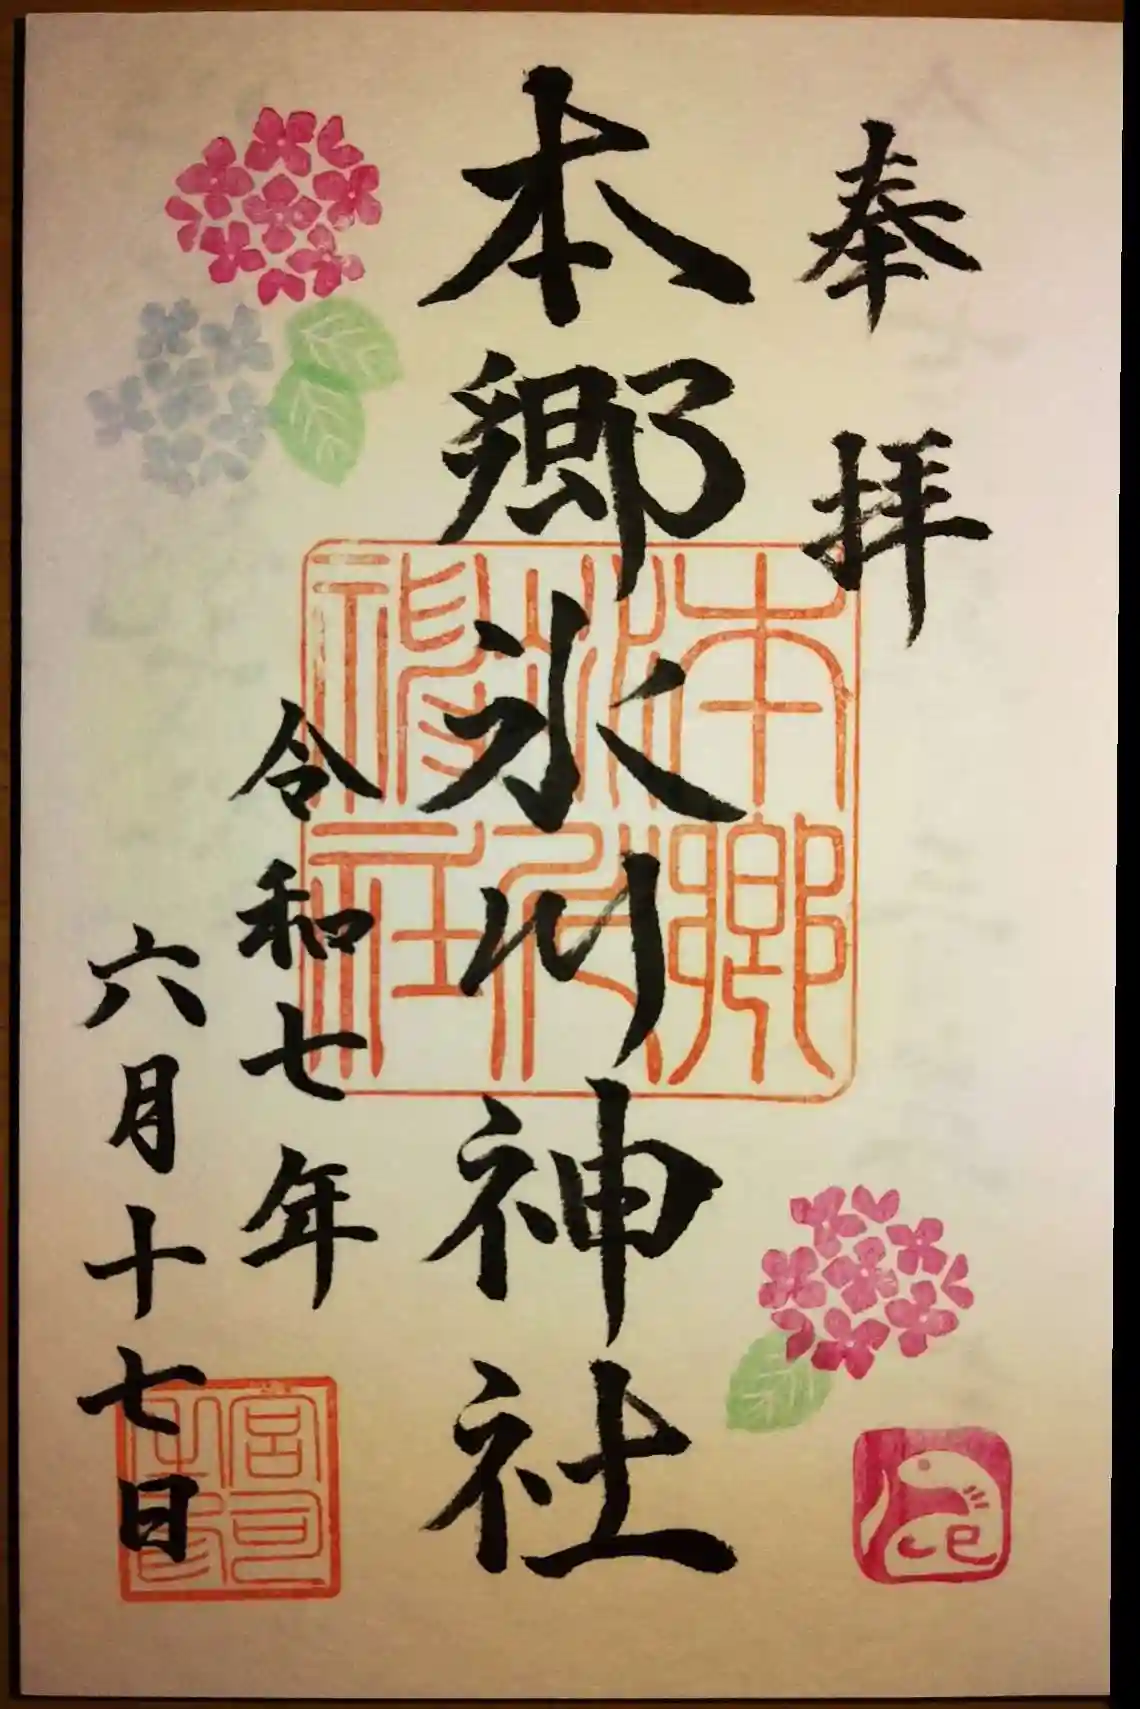 奉拝
本郷氷川神社
令和七年
六月十七日
本郷
氷川
神社
巳